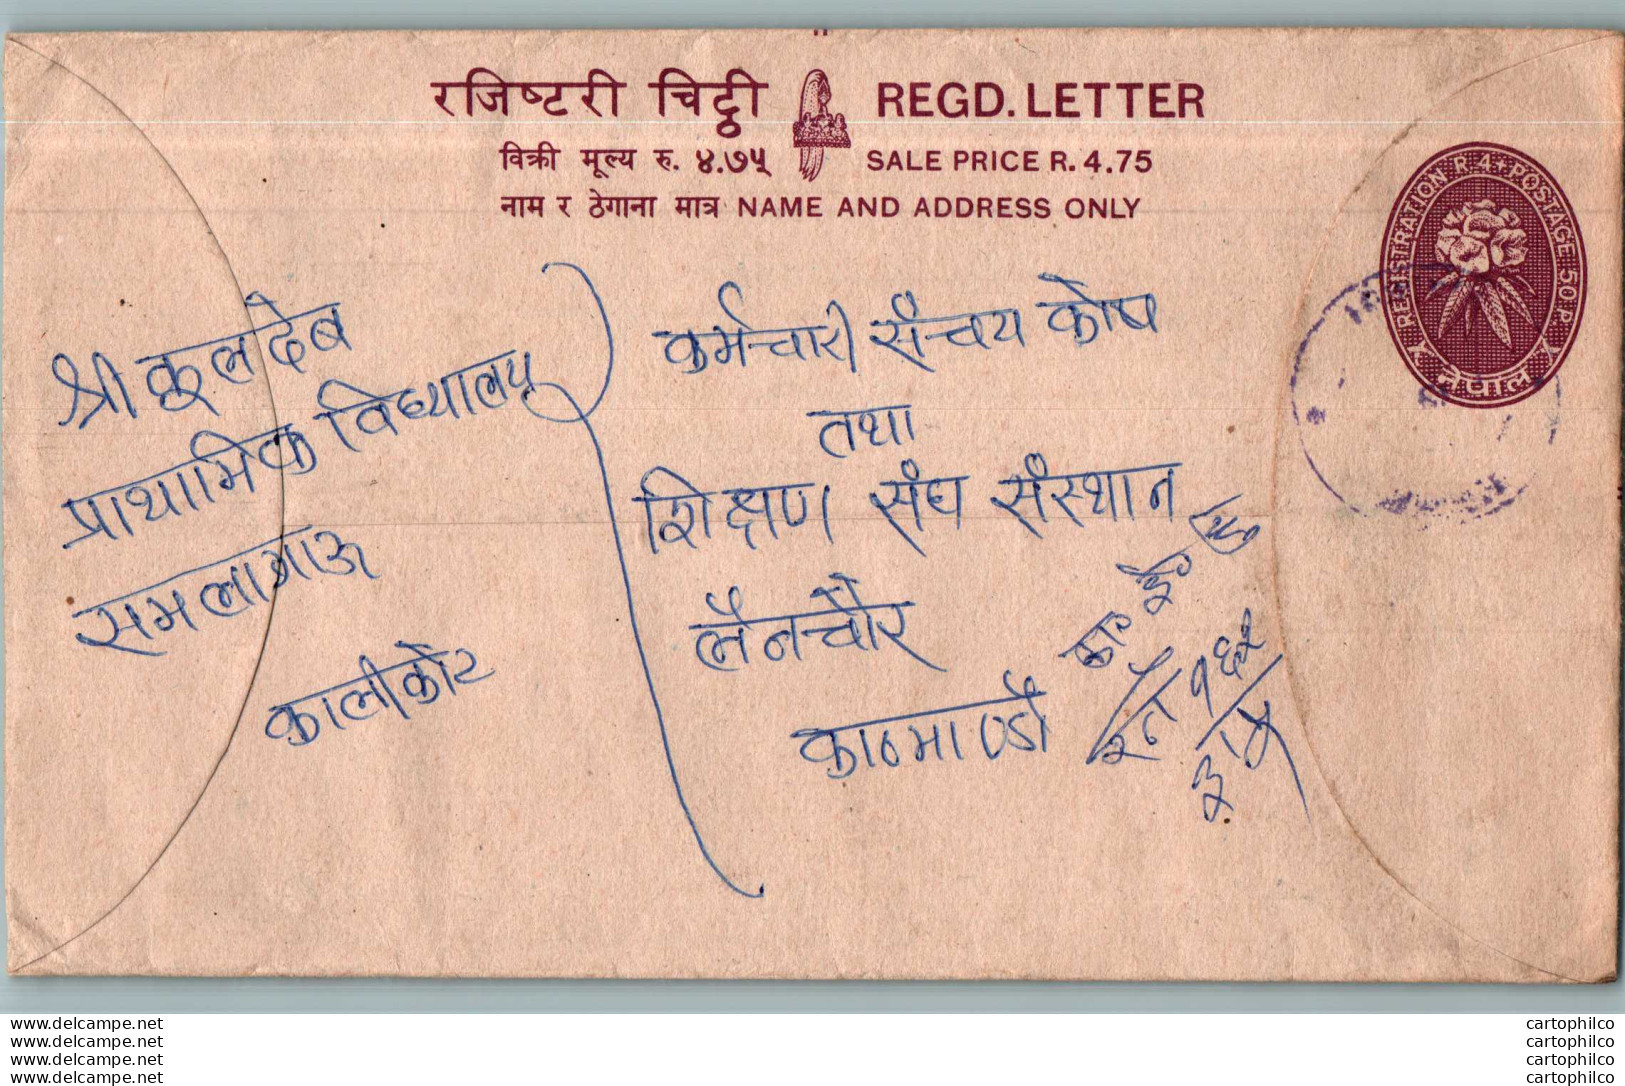 रजिष्टरी चिट्ठी REGD. LETTER
विक्री मूल्य रु. ४.७५ SALE PRICE R. 4.75
नाम र ठेगाना मात्र NAME AND ADDRESS ONLY
REGISTRATION R.4 + POSTAGE 50 P
नेपाल
श्री कूलदेब
प्राथामिक विघ्यालय
समलागाऊ
कालीकोट
कर्मचारी संचय कोष
तथा
शिक्षण संघ संस्थान
लैनचौर
काठमाण्डौ
www.delcampe.net
www.delcampe.net
www.delcampe.net
www.delcampe.net
cartophilco
cartophilco
cartophilco
cartophilco